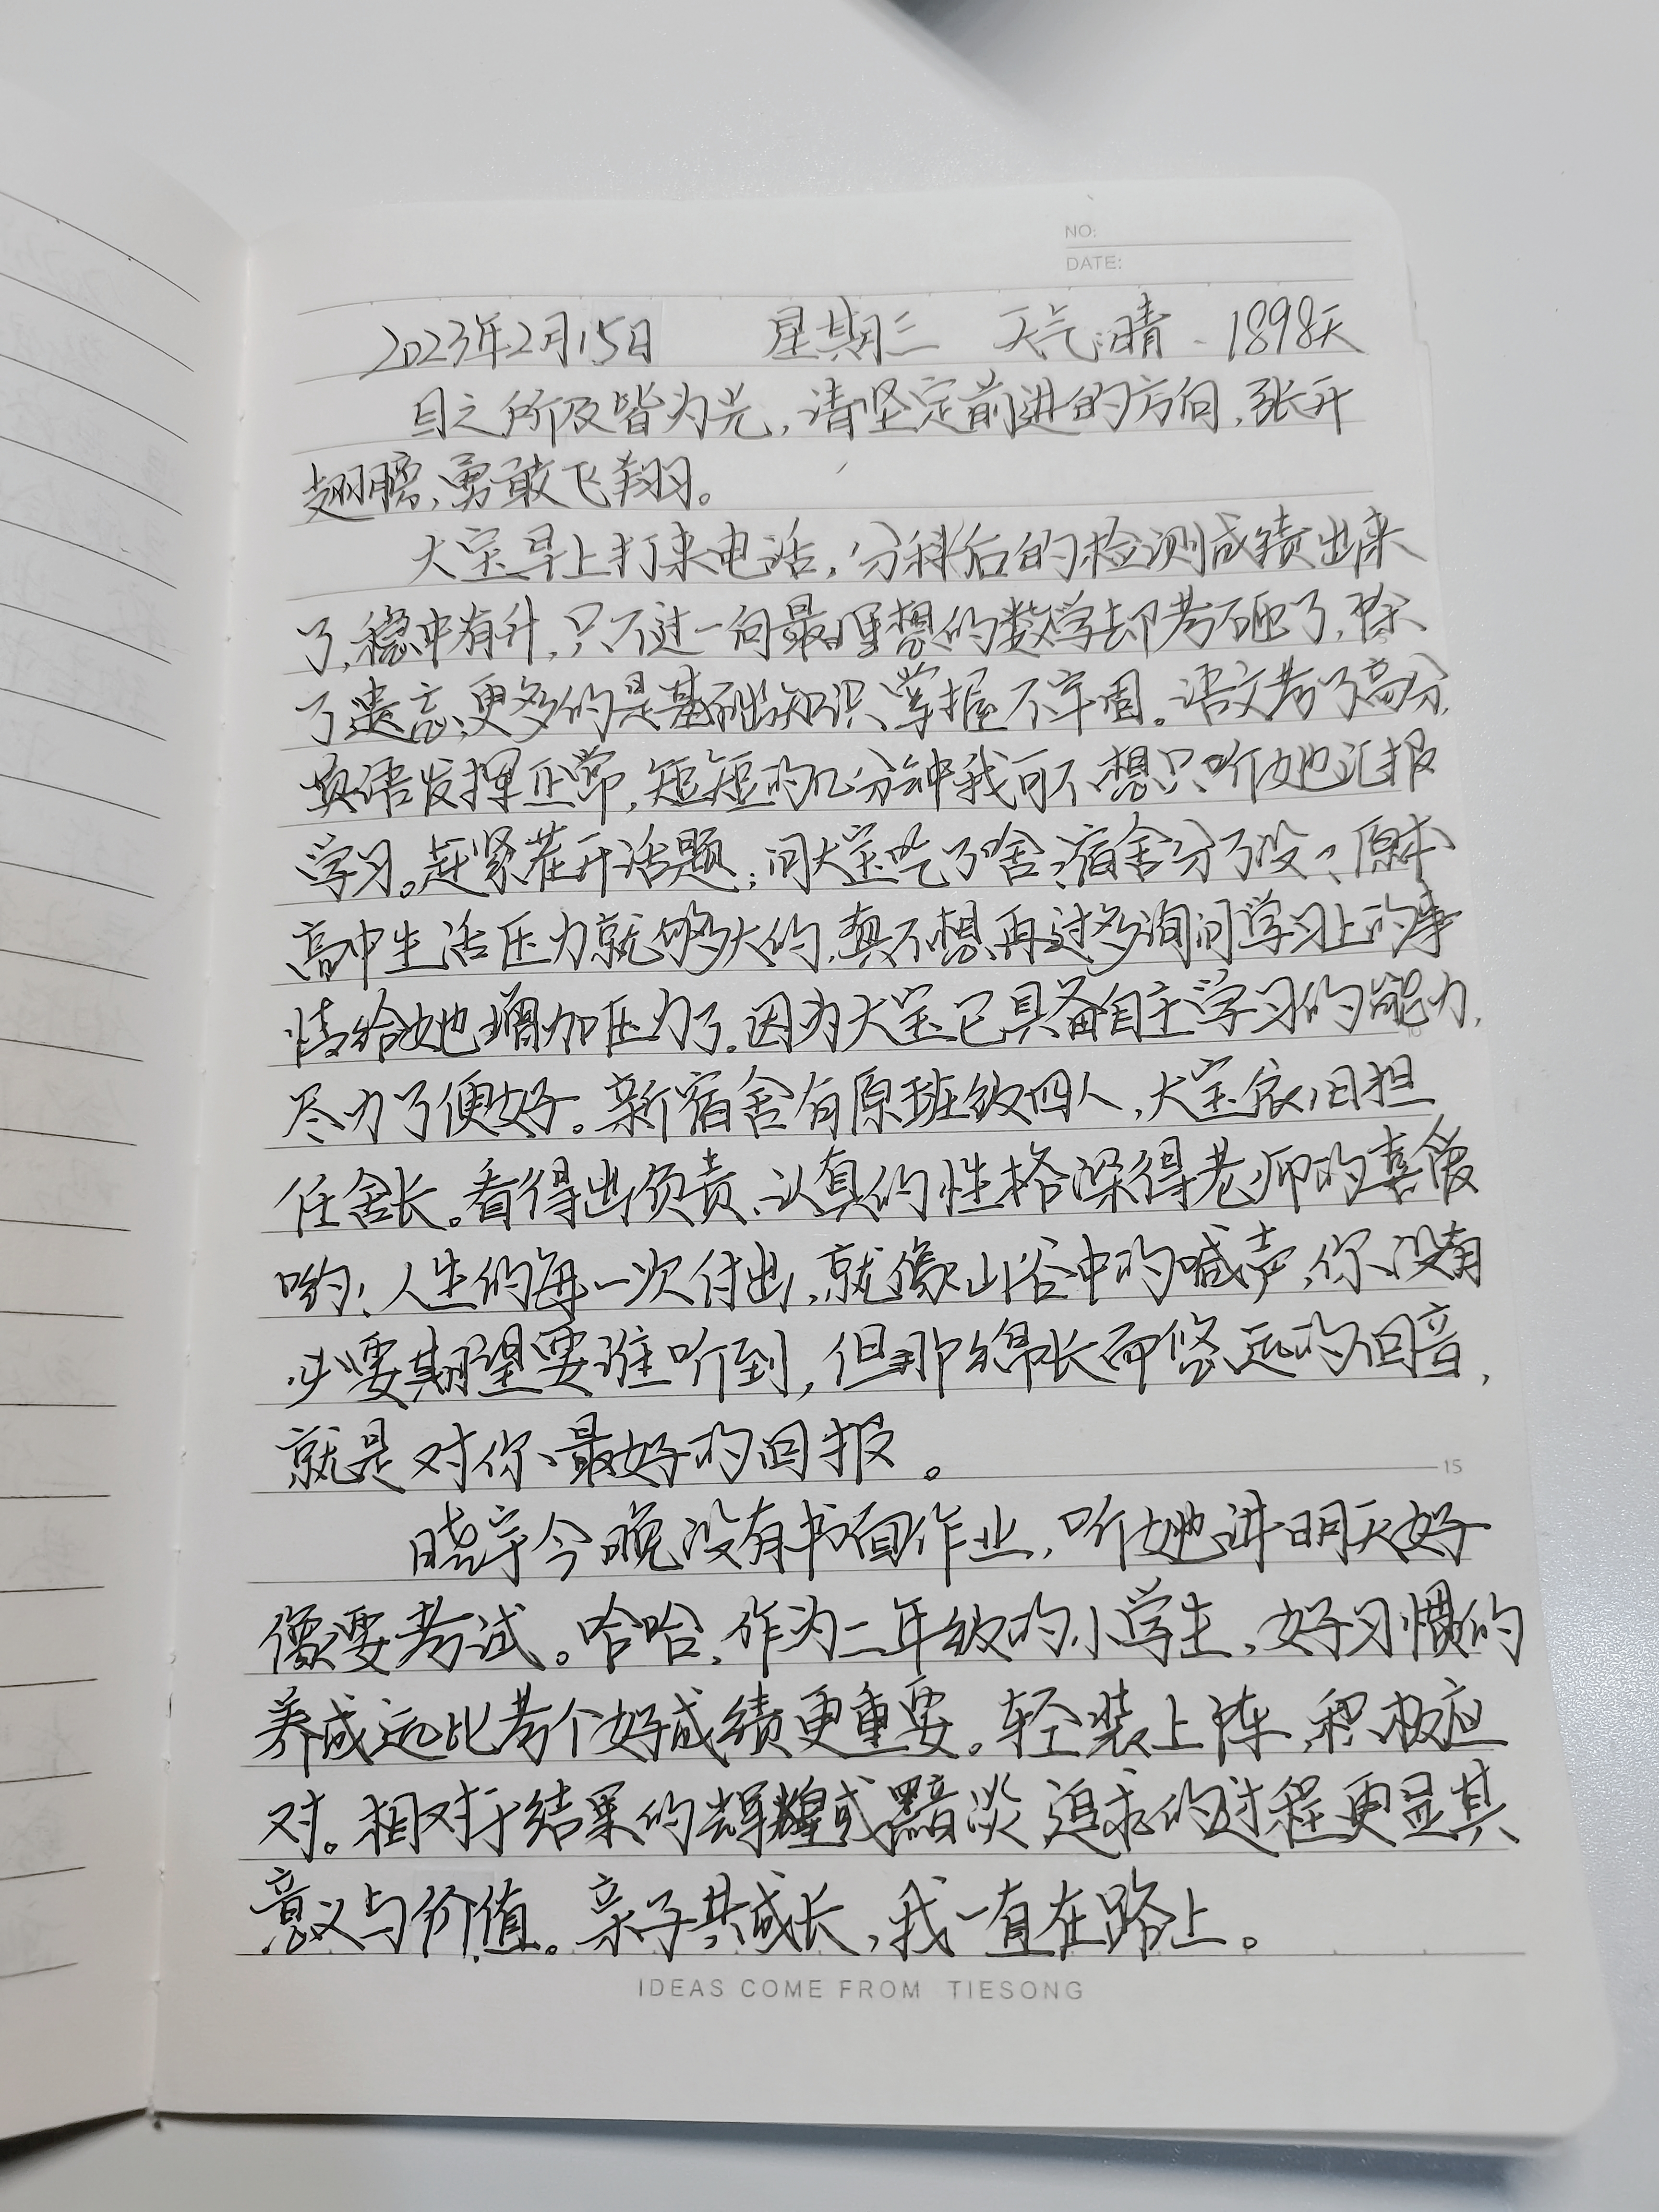 NO:
DATE:
2023年2月15日 星期三 天气:晴、1898天
目之所及皆为光,请坚定前进的方向,张开
翅膀,勇敢飞翔。
大宝早上打来电话,分科后的检测成绩出来
了,稳中有升,只不过一向最理想的数学却考砸了,除
了遗忘,更多的是基础知识掌握不牢固。语文考了高分,
英语发挥正常,短短的几分钟我可不想只听她汇报
学习。赶紧岔开话题;问大宝吃了啥?宿舍分了没?原本
高中生活压力就够大的,真不想再过多询问学习上的事
情给她增加压力了。因为大宝已具备自主学习的能力,
尽力了便好。新宿舍有原班级四人,大宝依旧担
任舍长。看得出负责、认真的性格深得老师的喜爱
哟!人生的每一次付出,就像山谷中的喊声,你没有
必要期望要谁听到,但那绵长而悠远的回音,
就是对你最好的回报。
15
晓宇今晚没有书面作业,听她讲明天好
像要考试。哈哈,作为二年级的小学生,好习惯的
养成远比考个好成绩更重要。轻装上阵,积极应
对。相对于结果的辉煌或黯淡 追求的过程更显其
意义与价值。亲子共成长,我一直在路上。
IDEAS COME FROM TIESONG